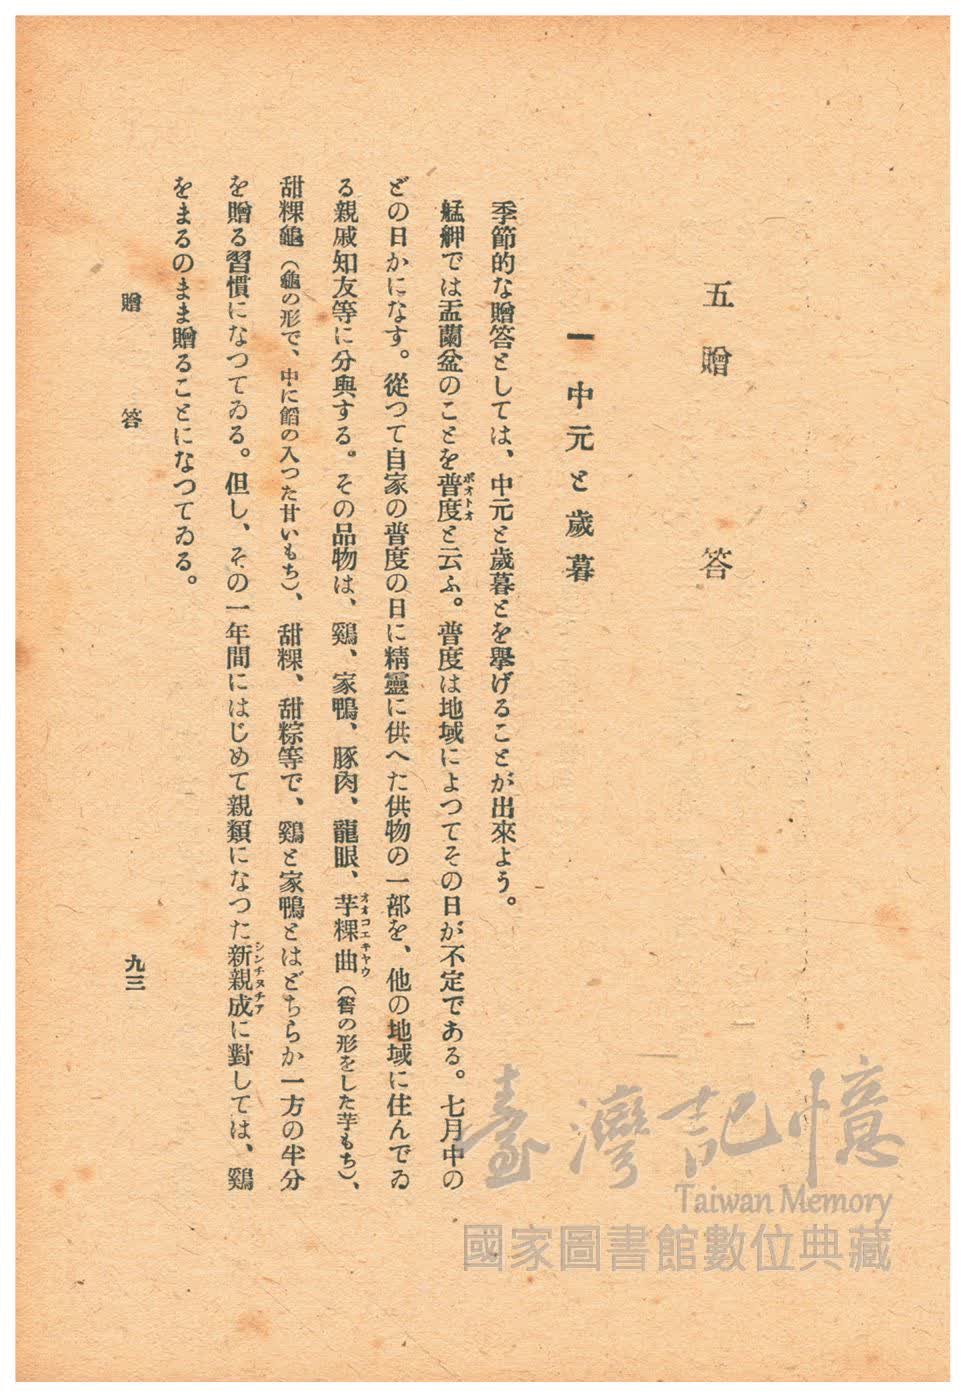 五 贈 答
一 中元と歲暮
季節的な贈答としては、中元と歲暮とを擧げることが出來よう。
艋舺では盂蘭盆のことを普度と云ふ。普度は地域によつてその日が不定である。七月中の
ポオトオ
どの日かになす。從つて自家の普度の日に精靈に供へた供物の一部を、他の地域に住んでゐ
る親戚知友等に分與する。その品物は、鷄、家鴨、豚肉、龍眼、芋粿曲（筶の形をした芋もち）、
オオコエキヤウ
甜粿龜（龜の形で、中に饀の入つた甘いもち）、甜粿、甜粽等で、鷄と家鴨とはどちらか一方の半分
を贈る習慣になつてゐる。但し、その一年間にはじめて親類になつた新親成に對しては、鷄
シンチヌチア
をまるのまま贈ることになつてゐる。
贈 答
九三
臺灣記憶
Taiwan Memory
國家圖書館數位典藏